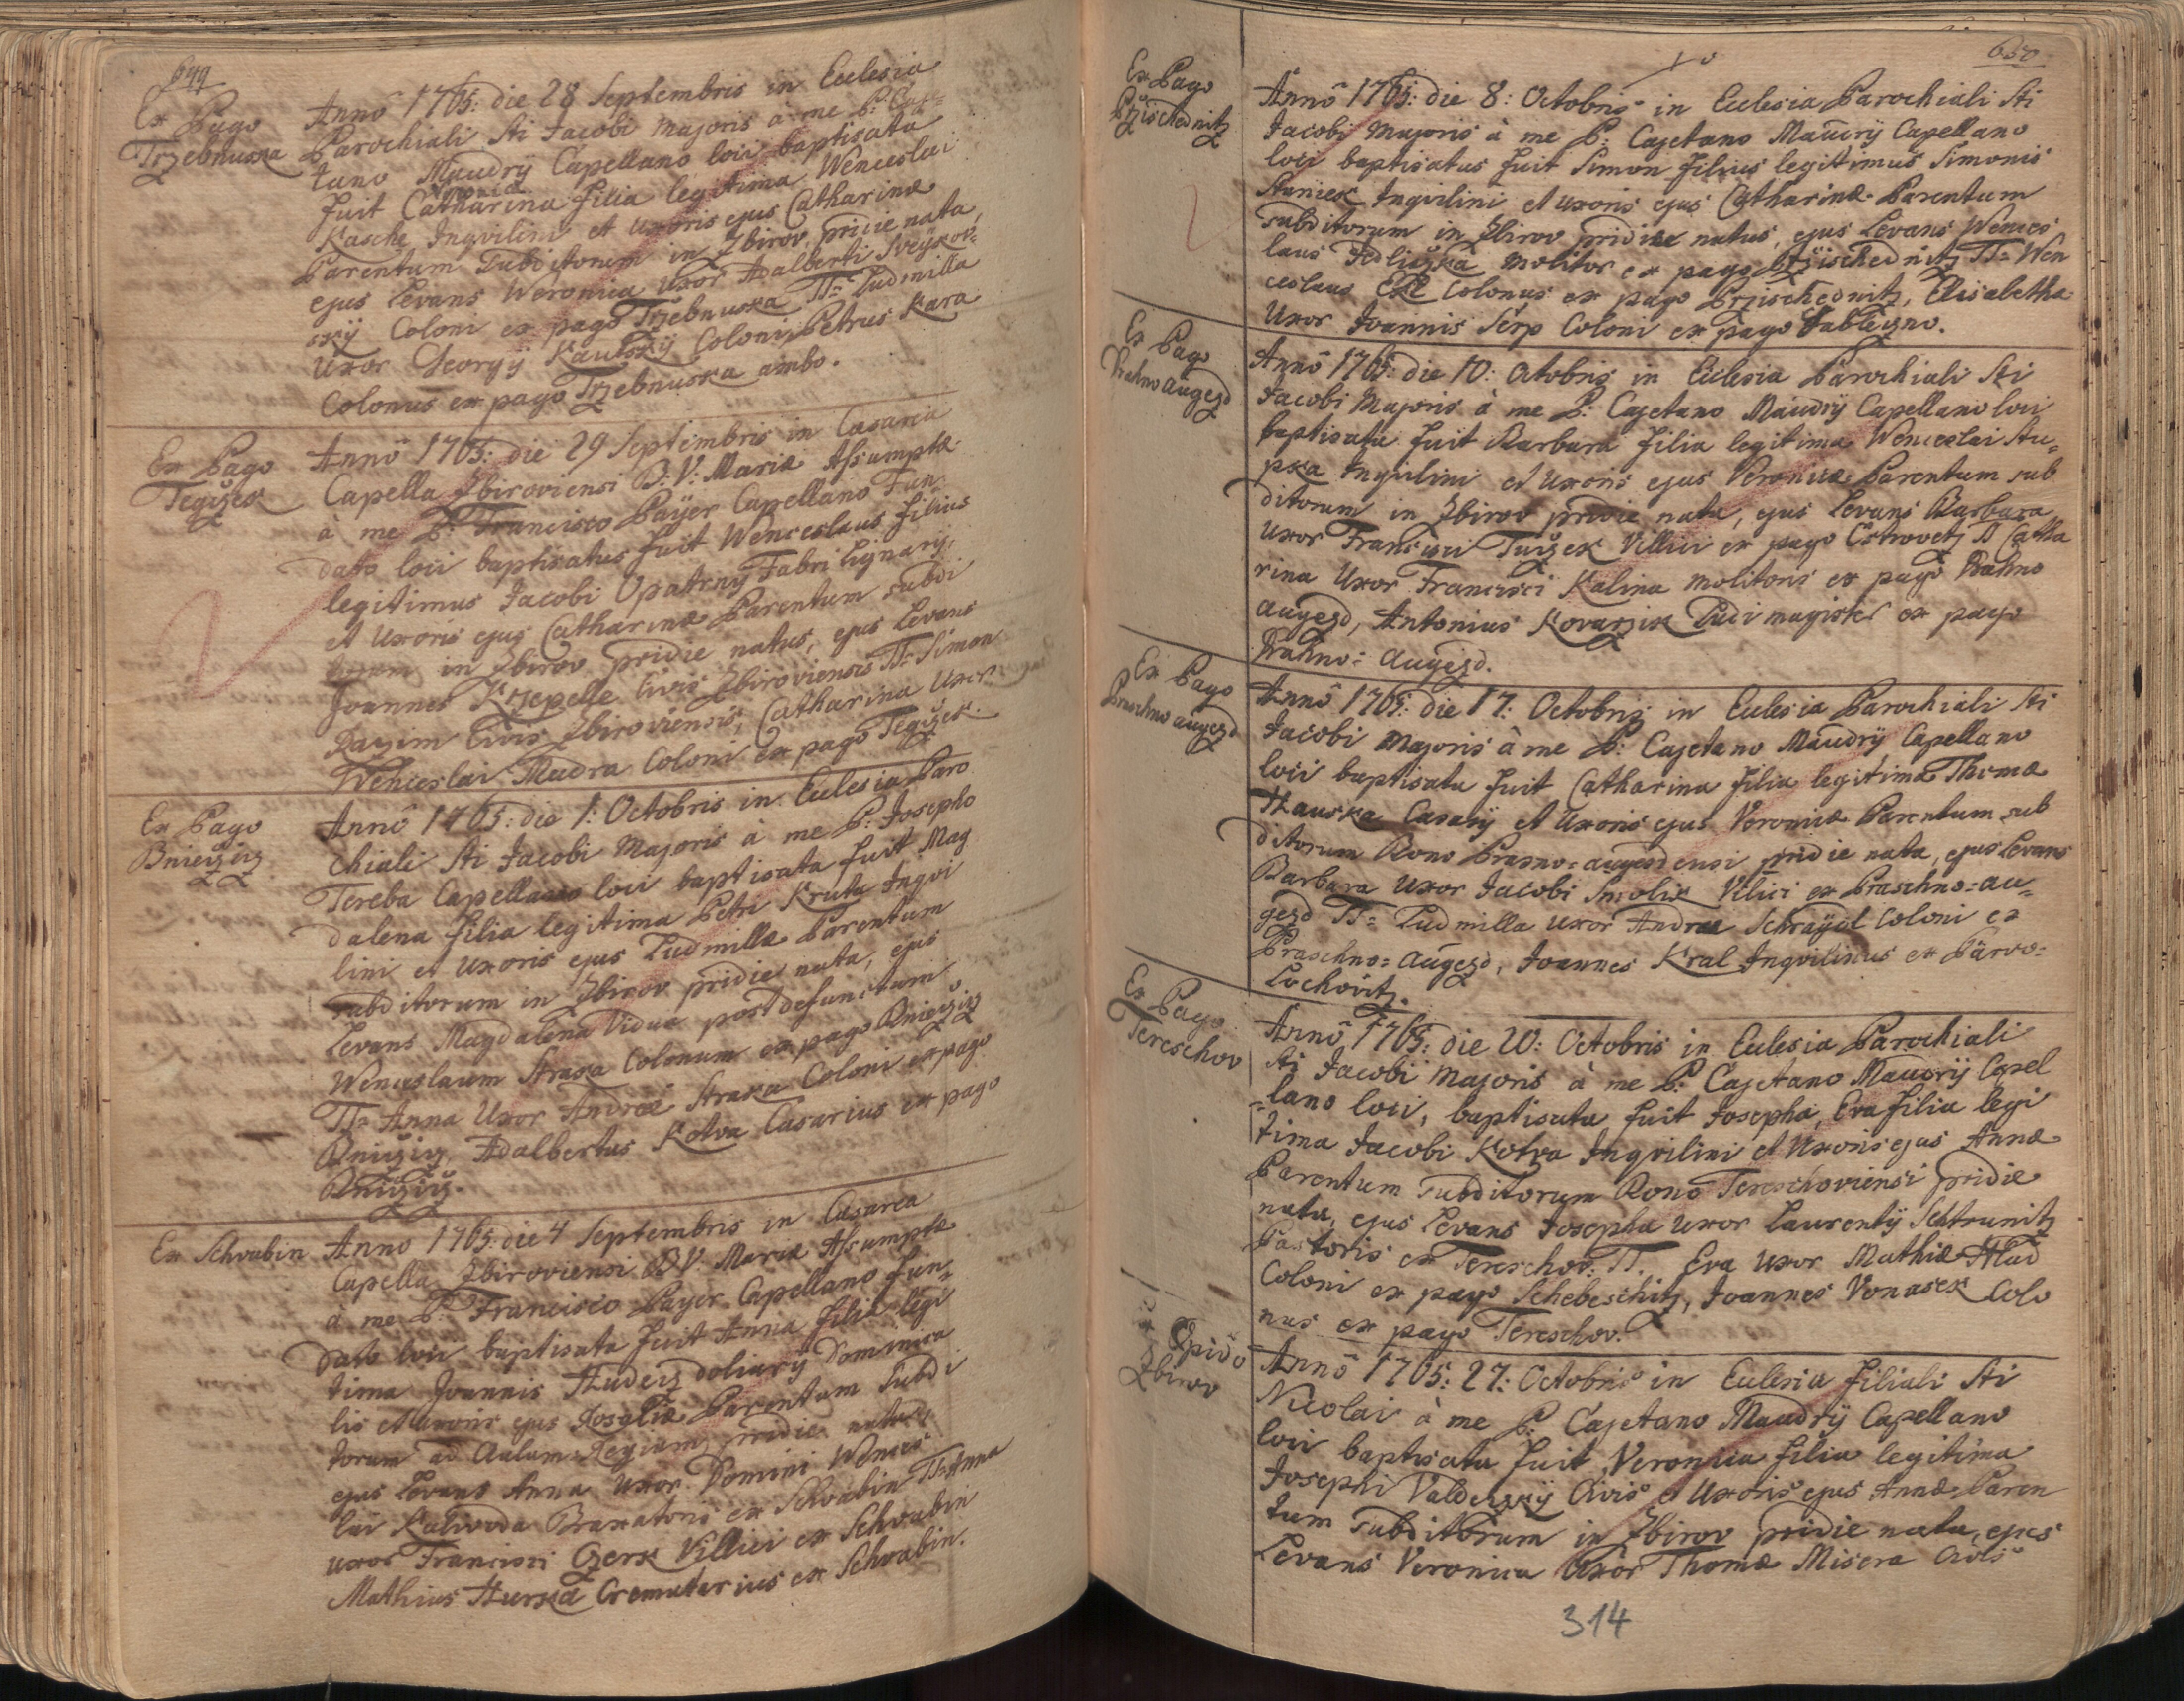 649
Ex Pago
Trzebnuska
Annô 1765: die 28 Septembris in Ecclesia
Parochiali Sti Jacobi Majoris à me P: Caje-
tano Maudrÿ Capellano loci baptisata
fuit Catharina filia legitima Wenceslai
Kasche Inqvilini et Uxoris ejus Catharinæ
Parentum Subditorum in Zbirov, pridie nata,
ejus Levans Weronica Uxor Adalberti Sveÿkov-
skÿ Coloni ex pago Trzebnuska TT: Ludmilla
Uxor Georgÿ Kautskÿ Coloni, Petrus Kara
Colonus ex pago Trzebnuska ambo.
Ex Pago
Tegizek
Annô 1765: die 29 Septembris in Cæsarea
Capella Zbiroviensi B: V: Mariæ Assumptæ
à me P: Francisco Paÿer Capellano Fun-
dato loci baptisatus fuit Wenceslaus filius
legitimus Jacobi Opatrnÿ Fabri lignarÿ,
et Uxoris ejus Catharinæ Parentum subdi
torum in Zbirov pridie natus, ejus Levans
Joannes Krzepelle Civis Zbiroviensis TT: Simon
Razim Civis Zbiroviensis, Catharina Uxor
Wenceslai Mudra Coloni ex pago Tegizek.
Ex Pago
Bniezicz
Annô 1765: die 1: Octobris in Ecclesia Paro
chiali Sti Jacobi Majoris à me P: Josepho
Tereba Capellano loci baptisata fuit Mag
dalena filia legitima Petri Kruta Inqvi
lini et Uxoris ejus Ludmillæ Parentum
subditorum in Zbirov pridie nata, ejus
Levans Magdalena Vidua post defunctum
Wenceslaum Straka Colonum ex pago Bniezicz
TT: Anna Uxor Andreæ Straka Coloni ex pago
Bniezicz, Adalbertus Kotva Casarius ex pago
Bniezicz.
Ex Schvabin
Anno 1765: die 4 Septembris in Cæsarea
Capella Zbiroviensi B: V: Mariæ Assumptæ
à me P: Francisco Payer Capellano Fun-
dato loci baptisata fuit Anna filia legi
tima Joannis Hudecz doliarÿ Dominica
lis et uxoris ejus Rosaliæ Parentum Subdi
torum ad Aulam Regiam pridie nata,
ejus Levans Anna Uxor Domini Wences
lai Kaliwoda Braxatoris ex Schvabin TT: Anna
uxor Francisci Czerk Villici ex Schvabin
Mathius Hurka Crematarius ex Schvabin.
650
Ex Pago
Przischednitz
Annô 1765: die 8: Octobris in Ecclesia Parochiali Sti
Jacobi Majoris à me P: Cajetano Maudrÿ Capellano
loci baptisatus fuit Simon filius legittimus Simonis
Staniek Inqvilini et uxoris ejus Catharinæ Parentum
subditorum in Zbirov pridie natus, ejus Levans Wences
laus Jedliczka Molitor ex pago Przischednitz TT: Wen
ceslaus Colonus ex pago Przischednitz, Elisabetha
Uxor Joannis Serp Coloni ex pago Jableczno.
Ex Pago
Drahno augezd
Annô 1765: die 10: Octobris in Ecclesia Parochiali Sti
Jacobi Majoris à me P: Cajetano Maudrÿ Capellano loci
baptisata fuit Barbara filia legitima Wenceslai Stu-
pka Inqvilini et Uxoris ejus Veronicæ Parentum sub
ditorum in Zbirov pridie nata, ejus Levans Barbara
Uxor Francisci Turzek Villici ex pago Ostrovetz TT Catha
rina Uxor Francisci Kalina molitoris ex pago Drahno
augezd, Antonius Kovarzik Ludi magister ex pago
Drahno: augezd.
Ex Pago
Praschno augezd
Annô 1765: die 17: Octobris in Ecclesia Parochiali Sti
Jacobi Majoris à me P: Cajetano Maudrÿ Capellano
loci baptisata fuit Catharina filia legitima Thomæ
Hauska Casarÿ et Uxoris ejus Veronicæ Parentum sub
ditorum Bono Prasno: augezdensi pridie nata, ejus Levans
Barbara Uxor Jacobi Smolik Vilici ex Praschno: au-
gezd TT: Ludmilla uxor Andreæ Schraÿol Coloni ex
Praschno: augezd, Joannes Kral Inqvilinus ex Parvo:
Lochovitz.
Ex Pago
Tereschov
Annô 1765: die 20: Octobris in Ecclesia Parochiali
Sti Jacobi Majoris à me P: Cajetano Maudrÿ Capel
-lano loci, baptisata fuit Josepha, Eva filia legi
tima Jacobi Kotva Inqvilini et Uxoris ejus Annæ
Parentum Subditorum Bono Tereschoviensi pridie
nata, ejus Levans Josepha uxor Laurentÿ Schtrunitz
Pastoris ex Tereschov: TT. Eva uxor Mathiæ Hlad
Coloni ex pago Schebeschitz, Joannes Vonasek Colo
nus ex pago Tereschov.
Ex Opido
Zbirov
Annô 1765: 27: Octobris in Ecclesia filiali Sti
Nicolai à me P: Cajetano Maudrÿ Capellano
loci baptisata fuit Veronica filia legitima
Josephi Valdeczkÿ Civis et Uxoris ejus Annæ Paren
tum subditorum in Zbirov pridie nata, ejus
Levans Veronica Uxor Thomæ Misera Civis
314